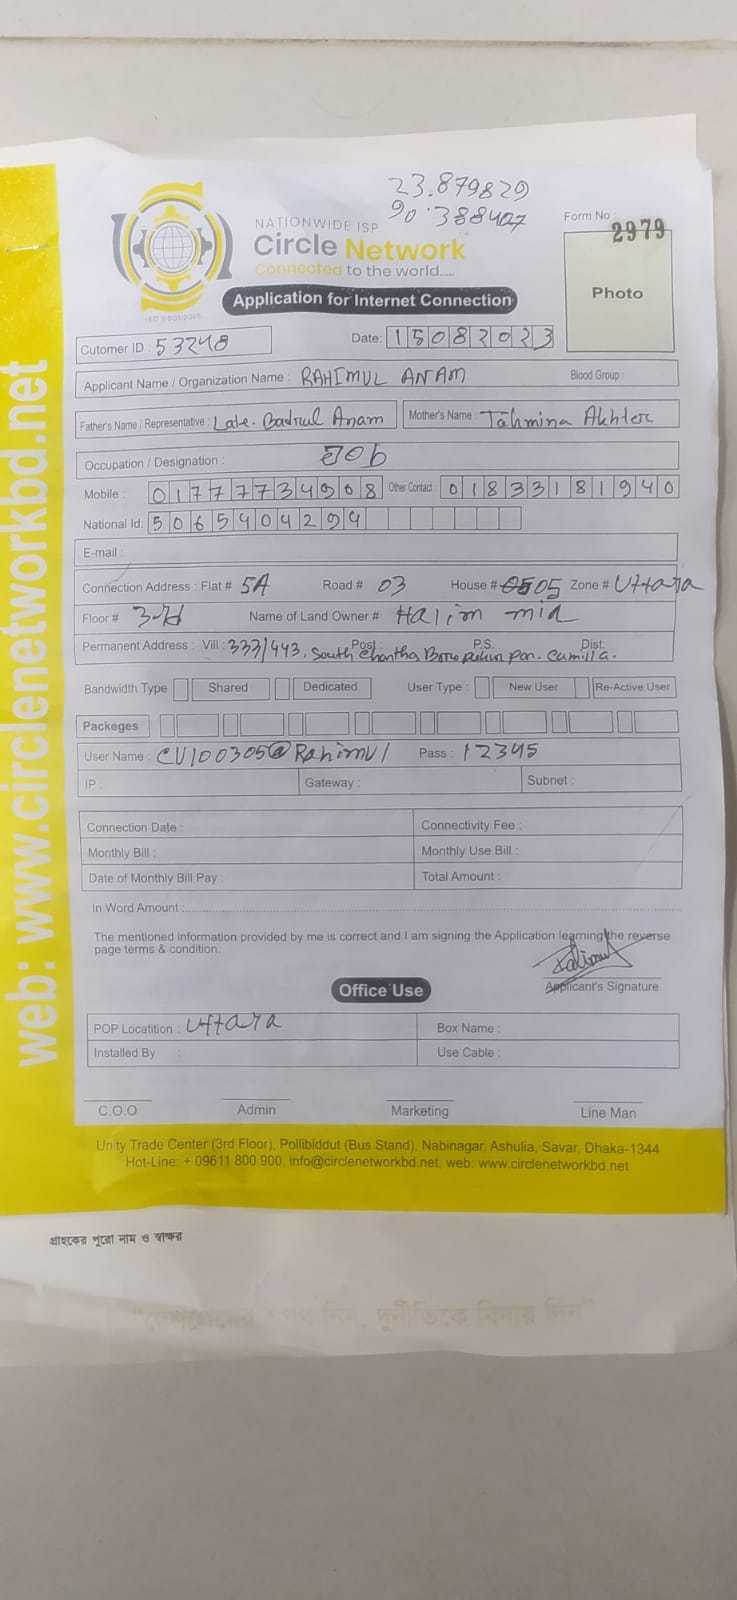 23.879829
90.388407
NATIONWIDE ISP
Circle Network
Connected to the world.....
ISO 9001:2015
Form No :
2979
Photo
Application for Internet Connection
Cutomer ID : 53248
Date: 15082023
Applicant Name / Organization Name : RAHIMUL ANAM Blood Group :
Father's Name / Representative : Late. Badrul Anam Mother's Name : Tahmina Akhter
Occupation / Designation : Job
Mobile : 01777734908 Other Contact : 01833181940
National Id: 5065404294
E-mail :
Connection Address : Flat # 5A Road # 03 House # 05 Zone # Uttara
Floor # 3rd Name of Land Owner # Halim mia
Permanent Address : Vill : 333/443, South Post : P.S. Dist: Cumilla.
Bandwidth Type Shared Dedicated User Type : New User Re-Active User
Packeges
User Name : CU100305@Rahimul Pass : 12345
IP : Gateway : Subnet :
Connection Date : Connectivity Fee :
Monthly Bill : Monthly Use Bill :
Date of Monthly Bill Pay : Total Amount :
In Word Amount :
The mentioned information provided by me is correct and I am signing the Application learning the reverse
page terms & condition.
Applicant's Signature
Office Use
POP Locatition : Uttara Box Name :
Installed By : Use Cable :
C.O.O Admin Marketing Line Man
Unity Trade Center (3rd Floor), Pollibiddut (Bus Stand), Nabinagar, Ashulia, Savar, Dhaka-1344
Hot-Line: + 09611 800 900, info@circlenetworkbd.net, web: www.circlenetworkbd.net
web: www.circlenetworkbd.net
গ্রাহকের পুরো নাম ও স্বাক্ষর
নিন, দুর্নীতিকে বিদায় দিন"